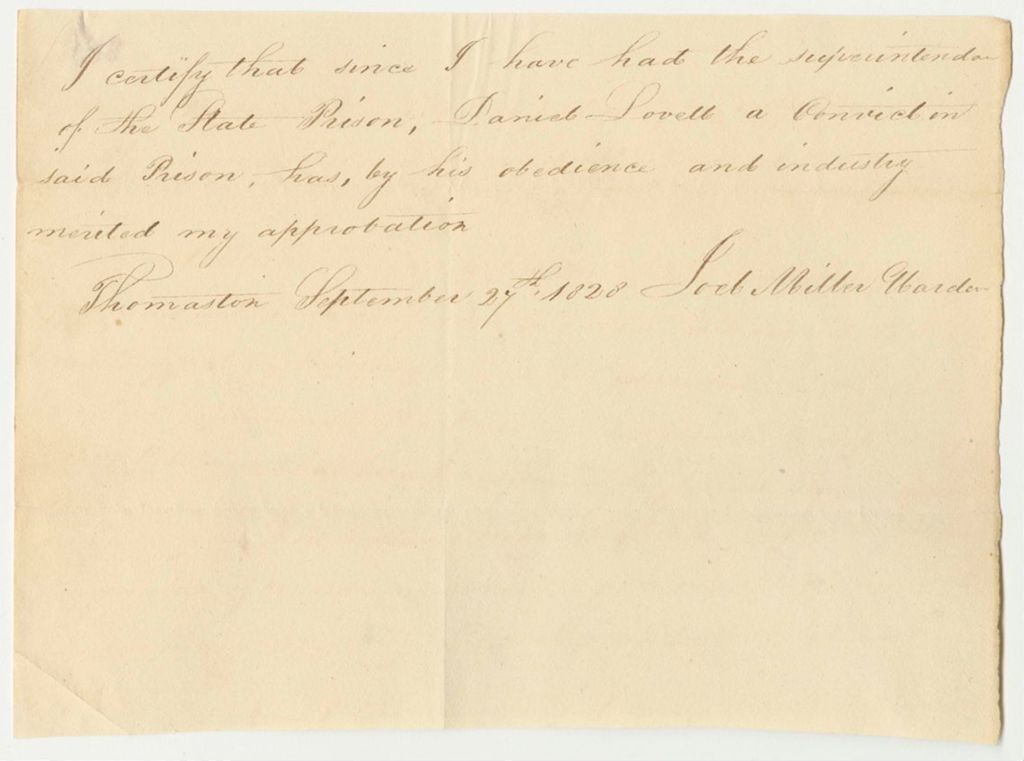 I certify that since I have had the superintenden
of the State Prison, Daniel Lovell a Convict in
said Prison, has, by his obedience and industry
merited my approbation
Thomaston September 27th. 1828 Joel Miller Warden